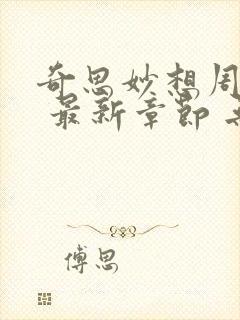 奇思妙想周
最新章节
傅思